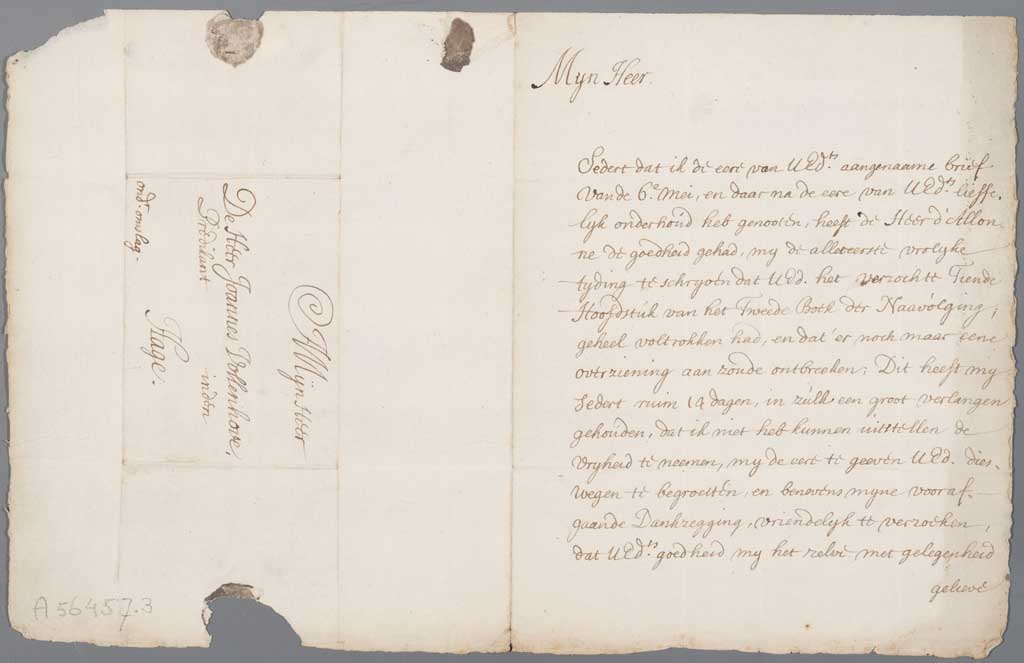 Mijn Heer
De Heer Joannes Vollenhove,
Predikant inden
Hage.
ond. omslag.
A 56457.3
Myn Heer.
Sedert dat ik de eere van UEd.ts aangenaame brief
vande 6.e Mei, en daar na de eere van UEd.ts lieffe-
lyk onderhoud heb genooten, heeft de Heer d'Allon-
ne de goedheid gehad, my de allereerste vrolyke
tyding te schryven dat UEd. het verzochte Tiende
Hoofdstuk van het Tweede Boek der Naavolging,
geheel voltrokken had, en dat'er noch maar eene
overziening aan zoude ontbreeken; Dit heeft my
sedert ruim 14 dagen, in zulk een groot verlangen
gehouden, dat ik niet heb kunnen uitstellen de
vryheid te neemen, my de eere te geeven UEd. dies-
wegen te begroetten, en benevens myne voor af-
gaande Dankzegging, vriendelyk te verzoeken,
dat UEd.ts goedheid my het zelve met gelegenheid
gelieve